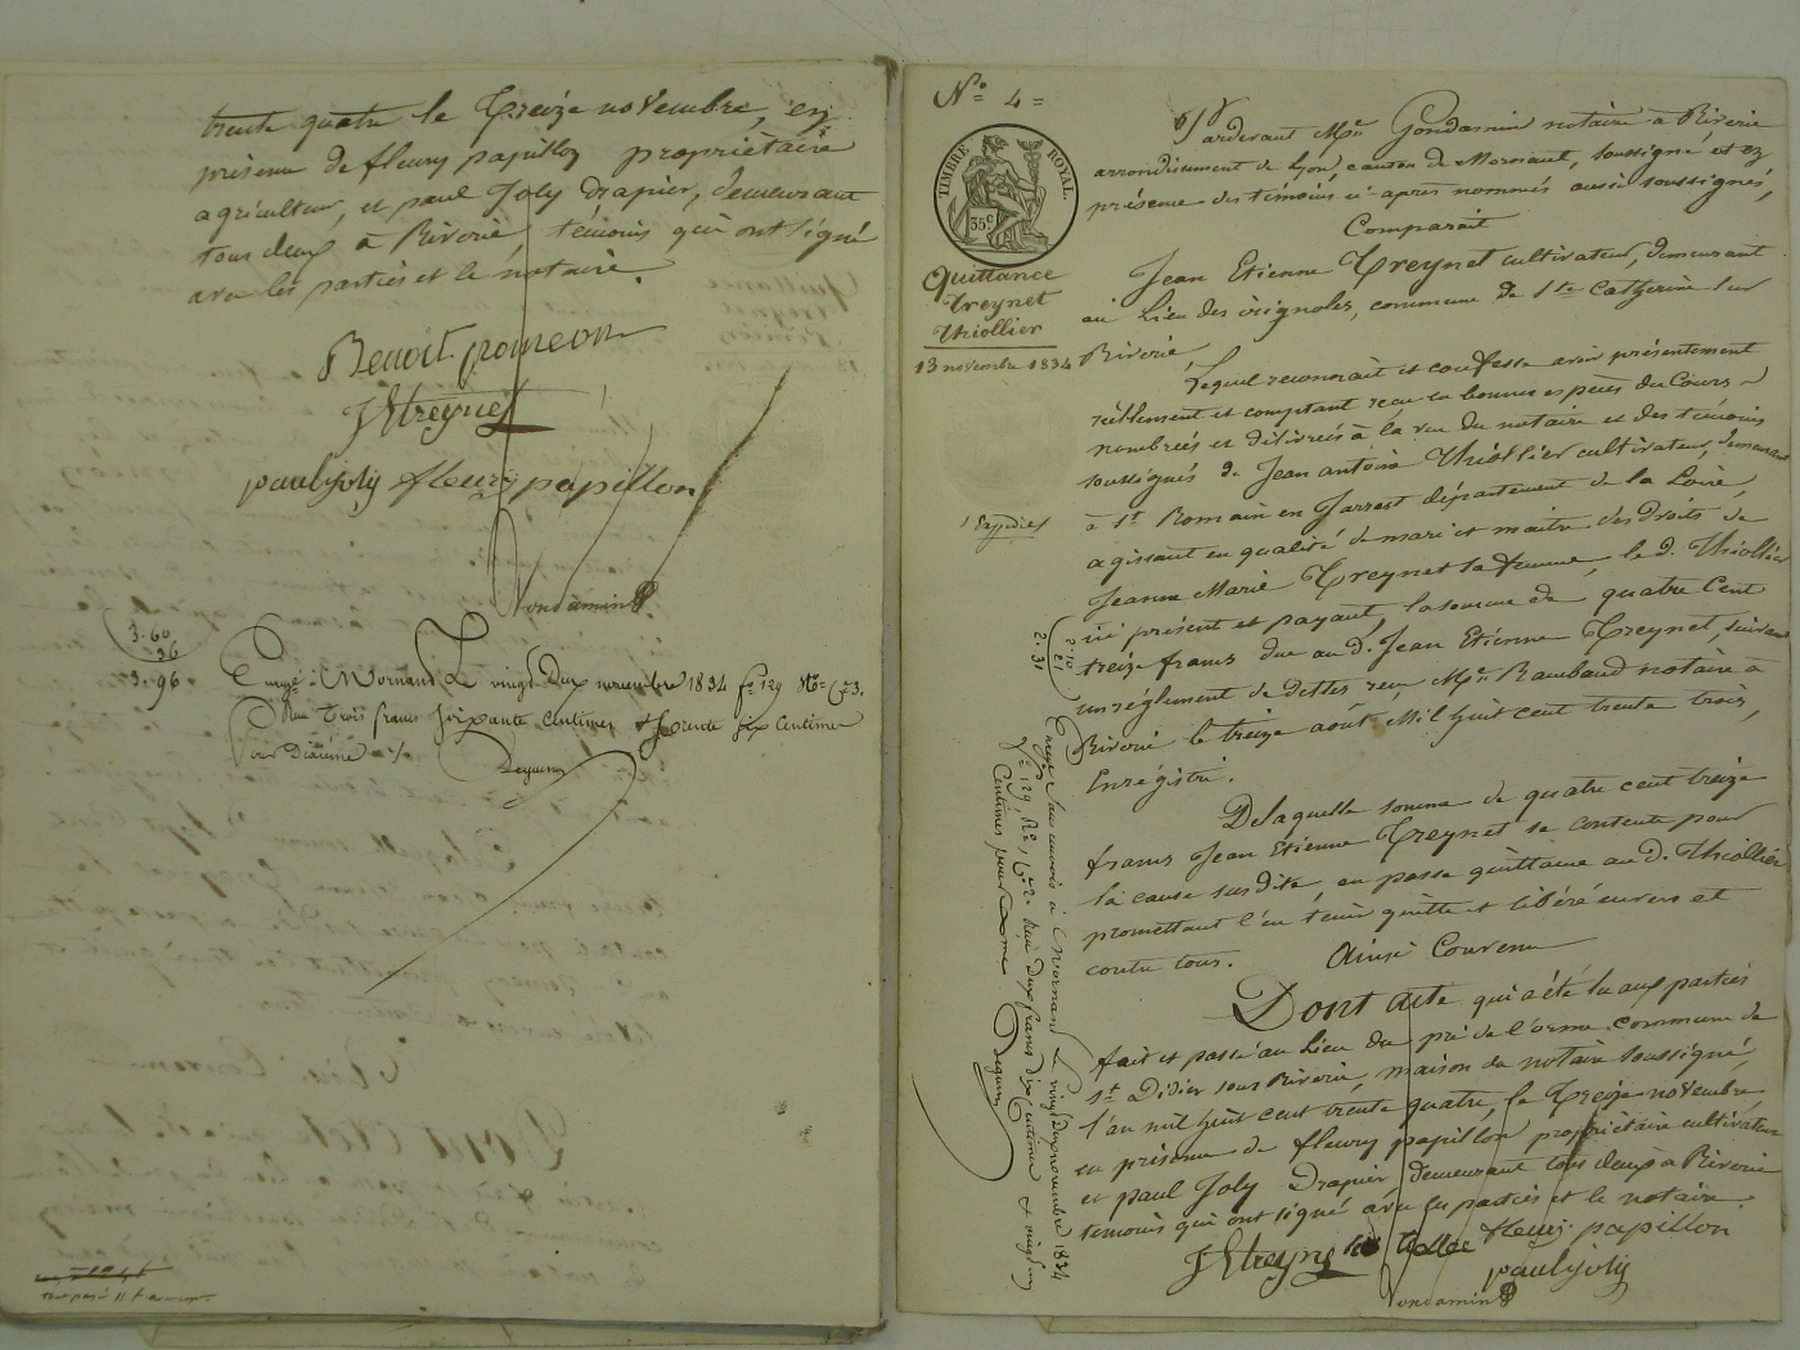 trente quatre le treize novembre, en
présence de fleury papillon propriétaire
agriculteur, et paul Joly drapier, demeurant
tous deux à Riverie, témoins qui ont signé
avec les parties et le notaire.
Benoit poncon
JEtreynet
paul joly fleury papillon
Gondamin
3.60
36
3.96
Enregé à Mornand Le vingt Deux novembre 1834 fo 129 Ro Ce 3.
Reçu Trois francs soixante centimes & trente six centimes
pour Dixième ./.
Deguin
No 4
TIMBRE ROYAL
35c
Quittance
treynet
thiollier
13 novembre 1834
1 Expédié
2.10
21
2.31
Enregé sans renvois à Mornand Le vingt Deux novembre 1834
fo 129, Ro, Ce 2. Reçu Deux francs dix Centimes & vingt un
Centimes pour Dixième
Deguin
Pardevant Me Gondamin notaire à Riverie
arrondissement de Lyon, canton de Mornant, soussigné et en
présence des témoins ci-après nommés aussi soussignés,
Comparait
Jean Etienne Treynet cultivateur, demeurant
au Lieu des vignoles, commune de Ste Catherine sur
Riverie,
Lequel reconnait et confesse avoir présentement
réellement et comptant reçu en bonnes espèces du Cours
nombrées et délivrées à la vue du notaire et des témoins
soussignés de Jean antoine Thiollier cultivateur, demeurant
à St Romain en Jarrest département de la Loire,
agissant en qualité de mari et maitre des droits de
Jeanne Marie Treynet sa femme, le d. Thiollier
ici présent et payant, la somme de quatre Cent
treize francs due au d. Jean Etienne Treynet, suivant
un réglement de dettes reçu Me Raimbaud notaire à
Riverie le treize août Mil huit cent trente trois,
Enrégistré.
De laquelle somme de quatre cent treize
francs Jean Etienne Treynet se contente pour
la cause susdite, en passe quittance au d. Thiollier
promettant l'en tenir quitte et libéré envers et
contre tous. Ainsi Convenu
Dont Acte qui a été lu aux parties
fait et passé au Lieu du pré de l'orme commune de
St Didier sous Riverie, maison du notaire soussigné,
l'an mil huit cent trente quatre, le Treize novembre,
en présence de fleury papillon propriétaire cultivateur
et paul Joly Drapier, demeurant tous deux à Riverie
temoins qui ont signé avec les parties et le notaire.
JEtreynet fleury papillon
paul joly
Gondamin